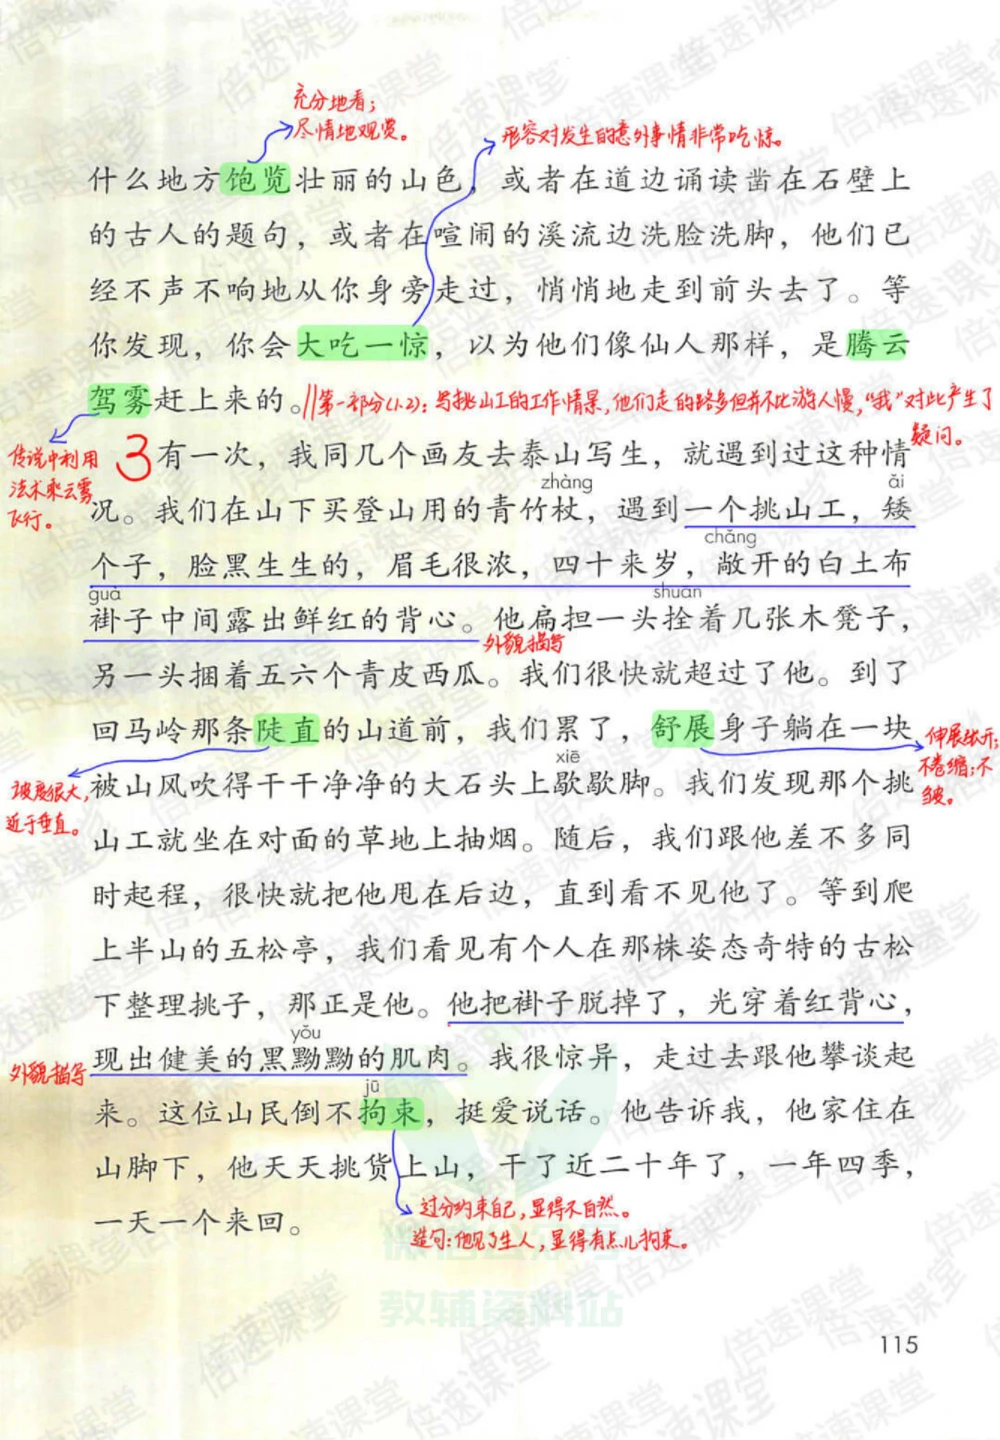 充分地看；
尽情地观赏。
形容对发生的意外事情非常吃惊。
什么地方饱览壮丽的山色，或者在道边诵读凿在石壁上
的古人的题句，或者在喧闹的溪流边洗脸洗脚，他们已
经不声不响地从你身旁走过，悄悄地走到前头去了。等
你发现，你会大吃一惊，以为他们像仙人那样，是腾云
驾雾赶上来的。
//第一部分(1.2)：写挑山工的工作情景，他们走的路多但并不比游人慢，“我”对此产生了
疑问。
传说中利用
法术乘云雾
飞行。
3
有一次，我同几个画友去泰山写生，就遇到过这种情
zhàng ǎi
况。我们在山下买登山用的青竹杖，遇到一个挑山工，矮
chǎng
个子，脸黑生生的，眉毛很浓，四十来岁，敞开的白土布
guà shuān
褂子中间露出鲜红的背心。他扁担一头拴着几张木凳子，
外貌描写
另一头捆着五六个青皮西瓜。我们很快就超过了他。到了
回马岭那条陡直的山道前，我们累了，舒展身子躺在一块
伸展张开；
不卷缩；不
皱。
xiē
坡度很大，
近于垂直。
被山风吹得干干净净的大石头上歇歇脚。我们发现那个挑
山工就坐在对面的草地上抽烟。随后，我们跟他差不多同
时起程，很快就把他甩在后边，直到看不见他了。等到爬
上半山的五松亭，我们看见有个人在那株姿态奇特的古松
下整理挑子，那正是他。他把褂子脱掉了，光穿着红背心，
yǒu
外貌描写
现出健美的黑黝黝的肌肉。我很惊异，走过去跟他攀谈起
jū
来。这位山民倒不拘束，挺爱说话。他告诉我，他家住在
山脚下，他天天挑货上山，干了近二十年了，一年四季，
一天一个来回。
过分约束自己，显得不自然。
造句：他见了生人，显得有点儿拘束。
教辅资料站
115
倍速课堂